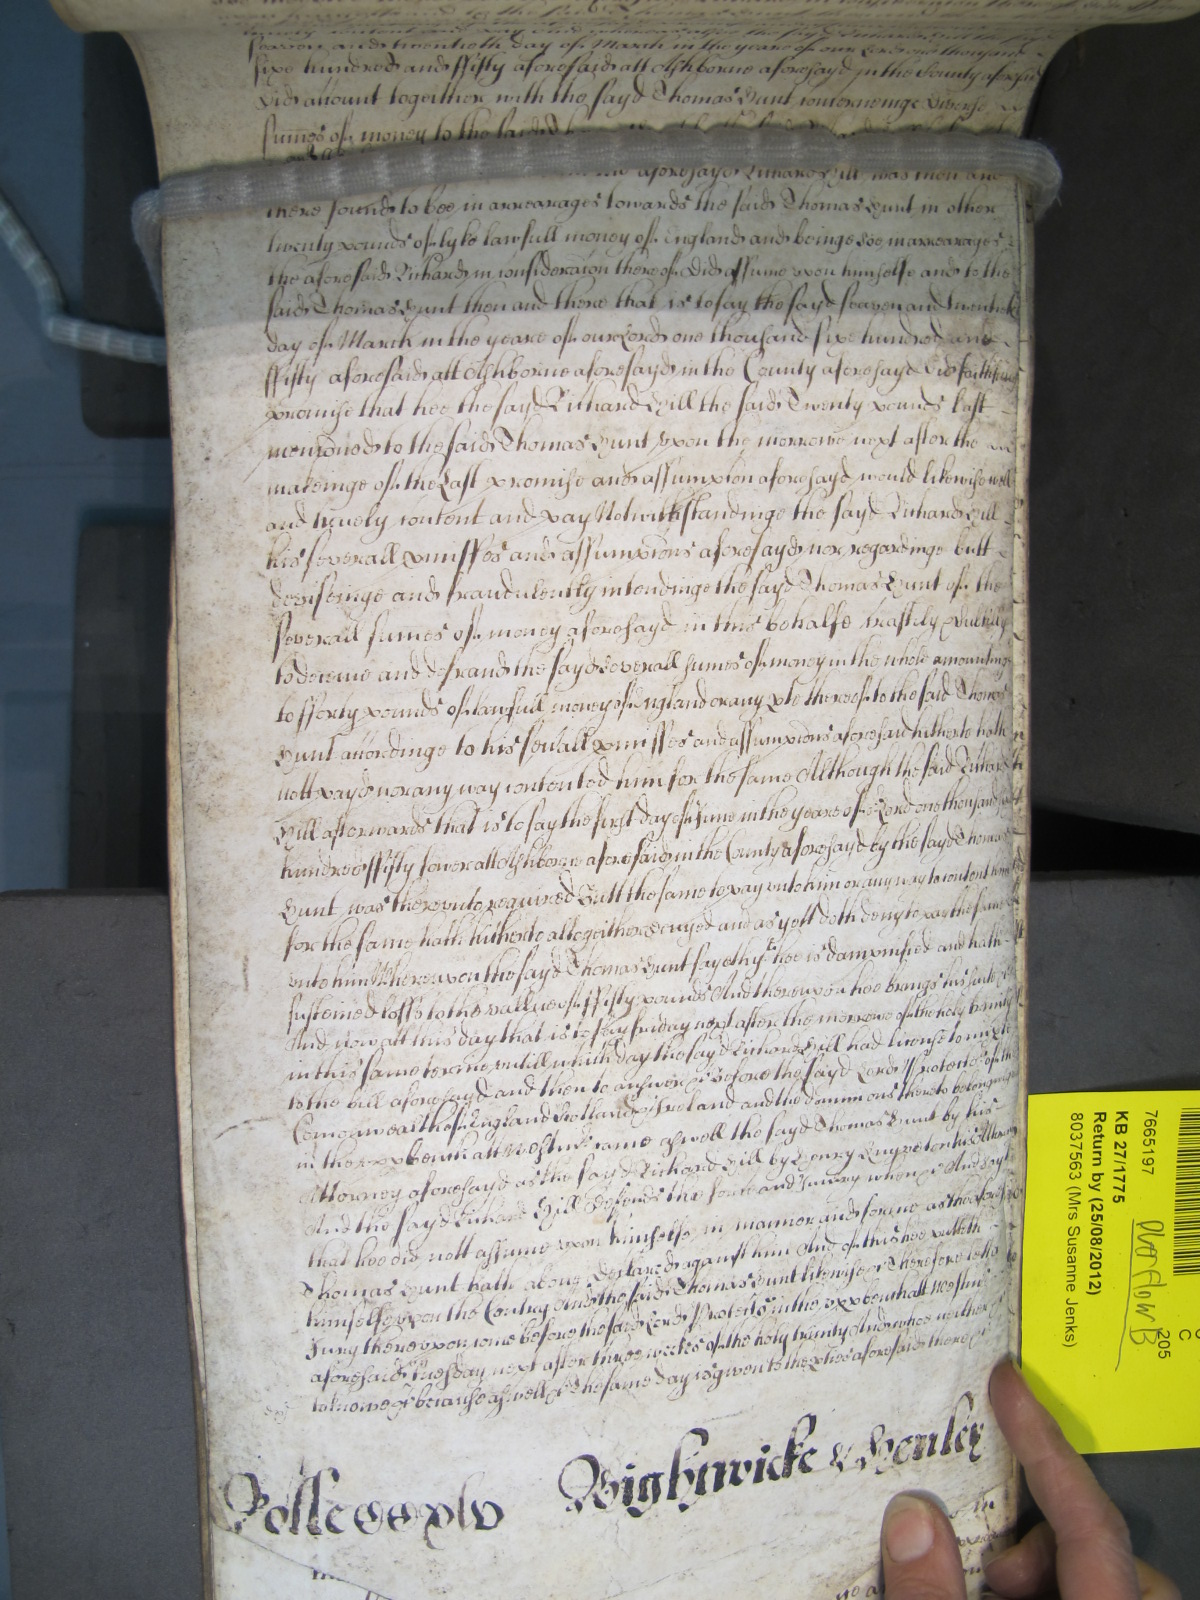 seaven and twentith day of March in the yeare of our Lord one thousand
sixe hundred and ffifty aforesaid att Ashborne aforesayd in the County aforesaid
did account together with the sayd Thomas Hunt concerninge diverse
sumes of money to the
aforesayd Richard Hill was then and
there found to bee in arrearages towards the said Thomas Hunt in other
twenty pounds of lyke lawfull money of England and beinge soe in arrearages
the aforesaid Richard in consideracion thereof did assume upon himselfe and to the
said Thomas Hunt then and there that is to say the sayd seaven and twentith
day of March in the yeare of our Lord one thousand sixe hundred and
ffifty aforesaid att Ashborne aforesayd in the County aforesayd did faithfully
promise that hee the sayd Richard Hill the said Twenty pounds last
mencioned to the said Thomas Hunt upon the morrowe next after the
makeinge of the Last promise and assumpcion aforesayd would likewise well
and truely content and pay Notwithstandinge the sayd Richard Hill
his severall pmisses and assumpcions aforesayd nor regardinge butt
deviseinge and fraudulently intendinge the sayd Thomas Hunt of the
severall sumes of money aforesayd in this behalfe craftily & subtilly
to deceive and defraud the sayd severall sumes of money in the whole amounting
to fforty pounds of lawfull money of England or any pte thereof to the said Thomas
Hunt accordinge to his sevall pmisses and assumpcions aforesaid hitherto hath
nott payd nor any way contented him for the same Although the said Richard
Hill afterwards that is to say the first day of June in the yeare of or Lord one thousand six
hundred ffifty fower att Ashborne aforesaid in the County aforesayd by the sayd Thomas
Hunt was thereunto required Butt the same to pay unto him or any way to content him
for the same hath hitherto altogeither denyed and as yett doth deny to pay the same
unto him Whereupon the sayd Thomas Hunt sayeth yt hee is dampnified and hath
susteined losse to the vallue of ffifty pounds And thereupon hee brings his suite &c
And now att this day that is to say ffriday next after the morrowe of the holy trinity
in this same terme untill which day the sayd Richard Hill had licence to imparle
to the bill aforesayd and then to answer &c before the sayd Lord Protector of the
Comonwealth of England Scotland & Ireland and the dominions thereto belonginge
in the uppbench att Westmr came aswell the sayd Thomas Hunt by his
Attorney aforesayd as the sayd Richard Hill by Henry his Attorney
And the sayd Richard Hill defends the force and Injury when &c And sayth
that hee did nott assume upon himselfe in manner and forme as the aforesaid
Thomas Hunt hath above declared against him And of this hee putteth
himselfe upon the Contry And the said Thomas Hunt likewise &c Therefore lett a
Jury thereupon come before the said Lord Protector in the uppbench att Westmr
aforesaid Tuesday next after three weekes of the holy trinity And who neither &c
to knowe &c because aswell &c The same day is given to the pties aforesaid there &c
Wightwicke & Henley
7665197
KB 27/1775
Return by (25/08/2012)
8037563 (Mrs Susanne Jenks)
Overflow B
C
205